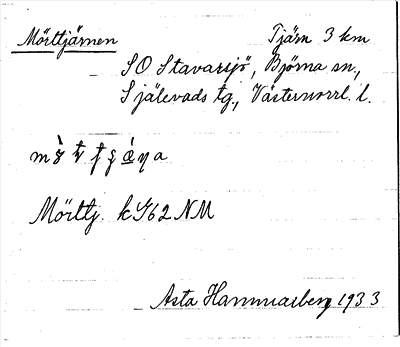 Mörttjärnen Tjärn 3 km
SO Stavarsjö, Björna sn,
Själevads tg., Västernorrl. l.
Mörttj. k Y62 NM
Asta Hammarberg 1933